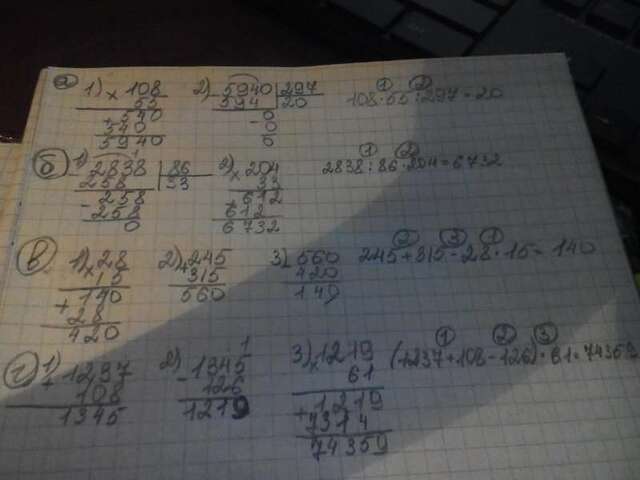 а) 1) × 108 2) - 5940 | 297 ① ②
55 594 | 20 108·55:297=20
+ 540 - 0
540 0
5940 0
б) 1) - 2838 | 86 2) × 204 ① ②
258 | 33 33 2838:86·204=6732
- 258 + 612
258 612
0 6732
в) 1) × 28 2) + 245 3) - 560 ② ③ ①
15 315 420 245+315-28·15=140
+ 140 560 140
28
420
г) 1) + 1237 2) - 1345 3) × 1219 ① ② ③
108 126 61 (1237+108-126)·61=74359
1345 1219 + 1219
7314
74359